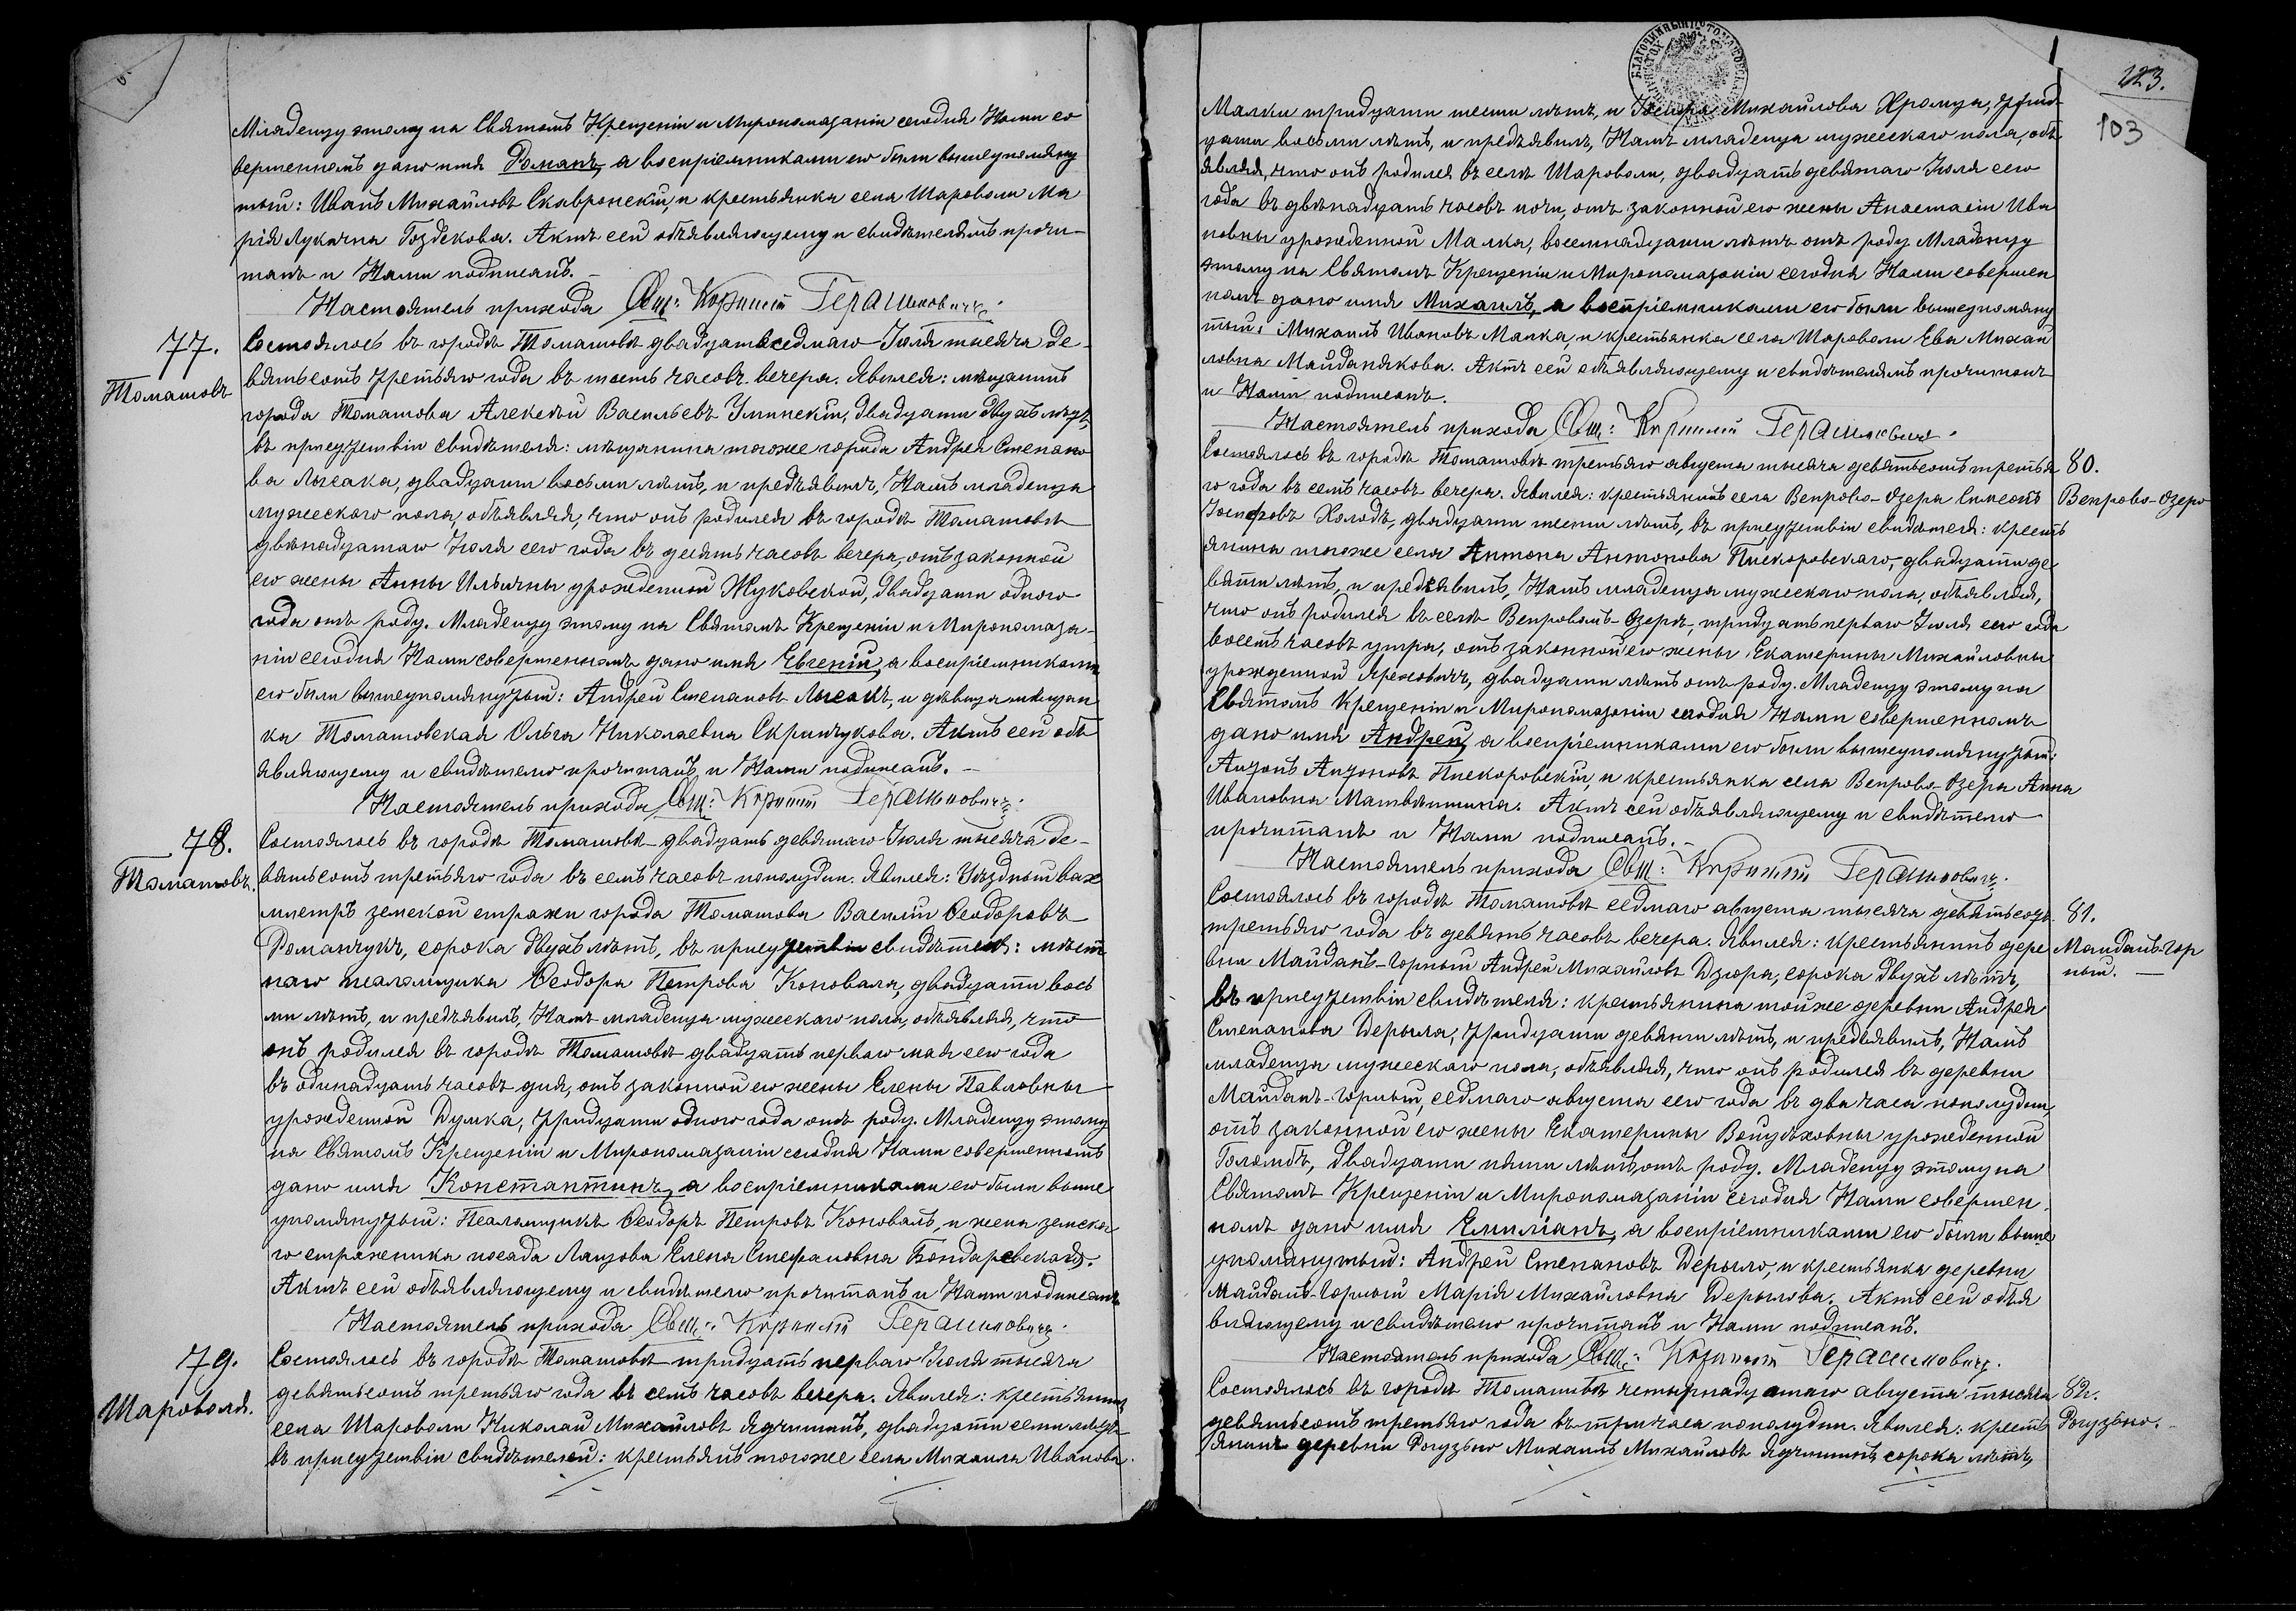 Младенцу этому на Святомъ Крещеніи и Миропомазаніи сегодня Нами со
вершенномъ дано имя Романъ, а воспріемниками его были вышеупомяну
тый: Иванъ Михайловъ Скавронскій, и крестьянка села Шароволи Ма
рія Лукачна Гоздекова. Актъ сей объявляющему и свидѣтелямъ прочи-
танъ и Нами подписанъ. –
Настоятель прихода Свщ: Кириллъ Герасимовичъ.
77.
Томашовъ
Состоялось въ городѣ Томашовѣ двадцать седмаго Іюля тысяча де-
вятьсотъ третьяго года въ шесть часовъ вечера. Явился: мѣщанинъ
города Томашова Алексѣй Васильевъ Улинскій, двадцати двухъ лѣтъ,
въ присутствіи свидѣтеля: мѣщанина тогоже города Андрея Степано
ва Лысака, двадцати восьми лѣтъ, и предъявилъ, Намъ младенца
мужескаго пола, объявляя, что онъ родился въ городѣ Томашовѣ
двѣнадцатаго Іюля сего года въ десять часовъ вечера, отъ законной
его жены Анны Ильичны урожденной Жуковской, двадцати одного
года отъ роду. Младенцу этому на Святомъ Крещеніи и Миропомаза-
ніи сегодня Нами совершенномъ дано имя Евгеній, а воспріемниками
его были вышеупомянутый: Андрей Степановъ Лысакъ, и дѣвица мѣщан
ка Томашовская Ольга Николаевна Скринчукова. Актъ сей объ
являющему и свидѣтелю прочитанъ и Нами подписанъ. –
Настоятель прихода Свщ: Кириллъ Герасимовичъ.
78.
Томашовъ.
Состоялось въ городѣ Томашовѣ двадцать девятаго Іюля тысяча де-
вятьсотъ третьяго года въ семь часовъ пополудни. Явился: Уѣздный вах
мистръ земской стражи города Томашова Василій Ѳеодоровъ
Романчукъ, сорока двухъ лѣтъ, въ присутствіи свидѣтеля: мѣст
наго псаломщика Ѳеодора Петрова Коноваля, двадцати вось
ми лѣтъ, и предъявилъ, Намъ младенца мужескаго пола, объявляя, что
онъ родился въ городѣ Томашовѣ двадцать перваго мая сего года
въ одинадцать часовъ дня, отъ законной его жены Елены Павловны
урожденной Думка, тридцати одного года отъ роду. Младенцу этому
на Святомъ Крещеніи и Миропомазаніи сегодня Нами совершенномъ
дано имя Константинъ, а воспріемниками его были выше
упомянутый: Псаломщикъ Ѳеодоръ Петровъ Коноваль, и жена земска
го стражника посада Лащова Елена Стефановна Бондаревская.
Актъ сей объявляющему и свидѣтелю прочитанъ и Нами подписанъ
Настоятель прихода Свщ: Кириллъ Герасимовичъ.
79.
Шароволя.
Состоялось въ городѣ Томашовѣ тридцать перваго Іюля тысяча
девятьсотъ третьяго года въ семь часовъ вечера. Явился: крестьянинъ
села Шароволи Николай Михайловъ Ячминъ, двадцати семи лѣтъ
въ присутствіи свидѣтелей: крестьянъ тогоже села Михаила Иванова
123.
103
Малки тридцати шести лѣтъ, и Іосифа Михайлова Хромца, трид-
цати восьми лѣтъ, и предъявилъ, Намъ младенца мужескаго пола, объ
являя, что онъ родился въ селѣ Шароволи, двадцать девятаго Іюля сего
года въ двѣнадцать часовъ ночи, отъ законной его жены Анастасіи Ива
новны урожденной Малка, восемнадцати лѣтъ отъ роду. Младенцу
этому на Святомъ Крещеніи и Миропомазаніи сегодня Нами совершен
номъ дано имя Михаилъ, а воспріемниками его были вышеупомяну
тый: Михаилъ Ивановъ Малка, и крестьянка села Шароволи Ева Михай
ловна Майданякова. Актъ сей объявляющему и свидѣтелямъ прочитанъ
и Нами подписанъ.
Настоятель прихода Свщ: Кириллъ Герасимовичъ.
80.
Вепрово-Озеро
Состоялось въ городѣ Томашовѣ третьяго августа тысяча девятьсотъ третья
го года въ семь часовъ вечера. Явился: крестьянинъ села Вепрово-Озера Симеонъ
Іосифовъ Холодъ, двадцати шести лѣтъ, въ присутствіи свидѣтеля: кресть
янина тогоже села Антона Антонова Пискоровскаго, двадцати де
вяти лѣтъ, и предъявилъ, Намъ младенца мужескаго пола, объявляя,
что онъ родился въ селѣ Вепровомъ-Озерѣ, тридцать перваго Іюля сего года
восемь часовъ утра, отъ законной его жены Екатерины Михайловны
урожденной Яреховичъ, двадцати лѣтъ отъ роду. Младенцу этому на
Святомъ Крещеніи и Миропомазаніи сегодня Нами совершенномъ
дано имя Андрей, а воспріемниками его были вышеупомянутый:
Антонъ Антоновъ Пискоровскій, и крестьянка села Вепрово-Озера Анна
Ивановна Матвѣишина. Актъ сей объявляющему и свидѣтелю
прочитанъ и Нами подписанъ. –
Настоятель прихода Свщ: Кириллъ Герасимовичъ.
81.
Майданъ-Гор
ный. –
Состоялось въ городѣ Томашовѣ седмаго августа тысяча девятьсотъ
третьяго года въ девять часовъ вечера. Явился: крестьянинъ дере
вни Майданъ-Горный Андрей Михайловъ Дзюра, сорока двухъ лѣтъ,
въ присутствіи свидѣтеля: крестьянина тойже деревни Андрея
Степанова Дерыла, тридцати девяти лѣтъ, и предъявилъ, Намъ
младенца мужескаго пола, объявляя, что онъ родился въ деревни
Майданъ-Горный, седмаго августа сего года въ два часа пополудни,
отъ законной его жены Екатерины Войцѣховны урожденной
Голомбъ, двадцати пяти лѣтъ, отъ роду. Младенцу этому на
Святомъ Крещеніи и Миропомазаніи сегодня Нами совершен
номъ дано имя Емиліанъ, а воспріемниками его были выше
упомянутый: Андрей Степановъ Дерыло, и крестьянка деревни
Майданъ-Горный Марія Михайловна Дерылова. Актъ сей объя
вляющему и свидѣтелю прочитанъ и Нами подписанъ.
Настоятель прихода Свщ: Кириллъ Герасимовичъ.
82.
Рогузьно.
Состоялось въ городѣ Томашовѣ четырнадцатаго августа тысяча
девятьсотъ третьяго года въ три часа пополудни. Явился: кресть
янинъ деревни Рогузьно Михаилъ Михайловъ Ячминъ, сорока лѣтъ,